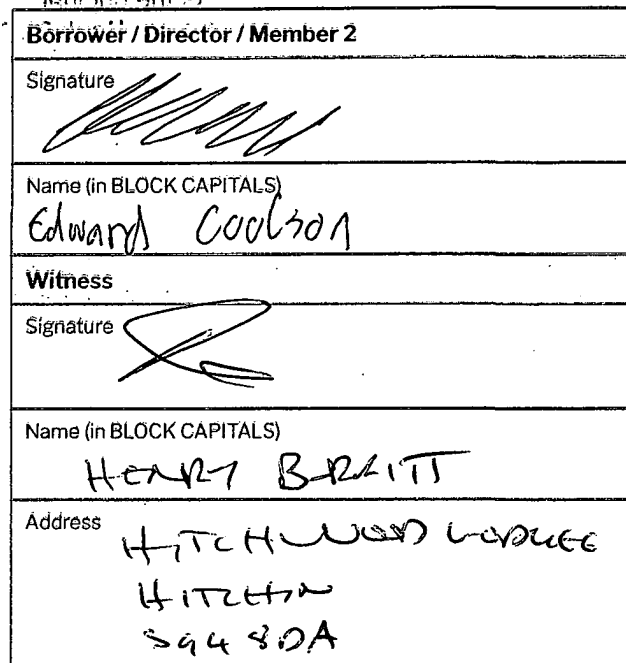 Borrower / Director / Member 2
Signature
Name (in BLOCK CAPITALS)
Edward Coulson
Witness
Signature
Name (in BLOCK CAPITALS)
HENRY
Address
HITCHWOOD
HITCHIN
SG4 8DA